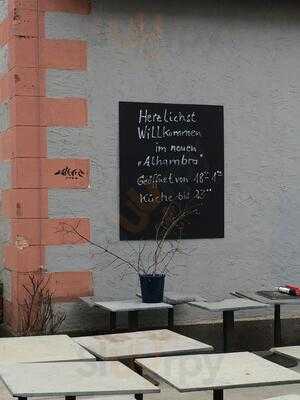 Herzlichst
Willkommen
im neuen
"Alhambra"
Geöffnet von 18⁰⁰-1⁰⁰
Küche bis 23⁰⁰